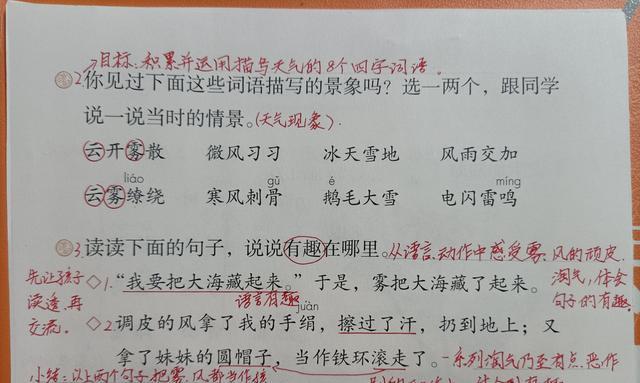 目标:积累并运用描写天气的8个四字词语。
2.你见过下面这些词语描写的景象吗？选一两个，跟同学
说一说当时的情景。(天气现象).
云开雾散 微风习习 冰天雪地 风雨交加
liáo gǔ é míng
云雾缭绕 寒风刺骨 鹅毛大雪 电闪雷鸣
3.读读下面的句子，说说有趣在哪里。从语言、动作中感受雾、风的顽皮、
先让孩子 ◇1.“我要把大海藏起来。”于是，雾把大海藏了起来。 淘气,体会
读透,再 语言有趣 句子的有趣。
juàn
交流。 ◇2.调皮的风拿了我的手绢，擦过了汗，扔到地上；又
拿了妹妹的圆帽子，当作铁环滚走了。一系列淘气乃至有点恶作
小结:以上两个句子把雾、风都当作